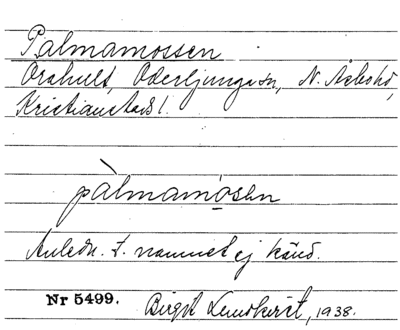 Palmamossen
Orahult, Oderljunga sn, N. Åsbohd,
Kristianstads l.
pàlmamosen
Anledn. t. namnet ej känd.
Nr 5499. Birgit Lundkvist, 1938.